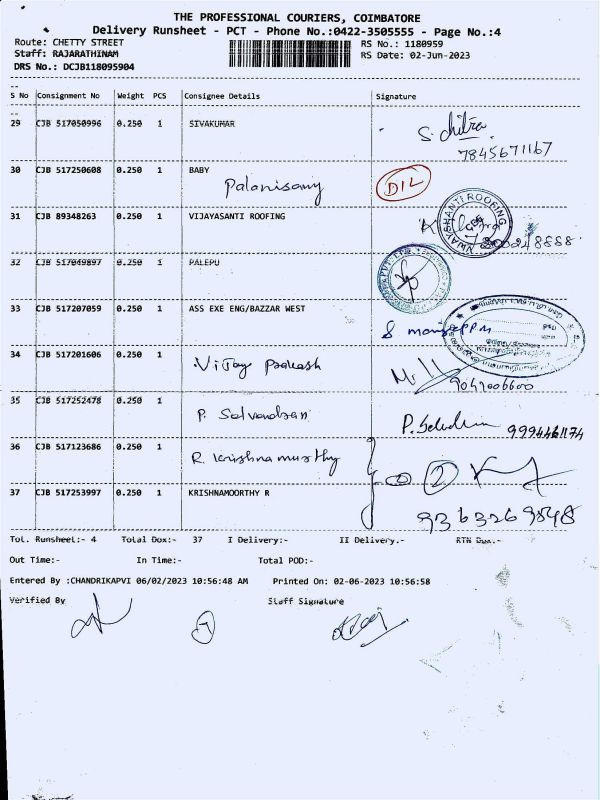 THE PROFESSIONAL COURIERS, COIMBATORE
Delivery Runsheet - PCT - Phone No.:0422-3505555 - Page No.:4
Route: CHETTY STREET
RS No.: 1180959
Staff: RAJARATHINAM
RS Date: 02-Jun-2023
DRS No.: DCJB118095904
S No Consignment No Weight PCS Consignee Details Signature
29 CJB 517050996 0.250 1 SIVAKUMAR S. chitra
7845671167
30 CJB 517250608 0.250 1 BABY
Palanisamy DIL
31 CJB 89348263 0.250 1 VIJAYASANTI ROOFING
VIJAYSHANTI ROOFING
32 CJB 517049897 0.250 1 PALEPU
33 CJB 517207059 0.250 1 ASS EXE ENG/BAZZAR WEST
34 CJB 517201606 0.250 1
35 CJB 517252478 0.250 1
P. 9994461174
36 CJB 517123686 0.250 1
R. Krishnamurthy 2
37 CJB 517253997 0.250 1 KRISHNAMOORTHY R
Tot. Runsheet:- 4 Total Dox:- 37 I Delivery:- II Delivery.- RTN Dox.:-
Out Time:- In Time:- Total POD:-
Entered By :CHANDRIKAPVI 06/02/2023 10:56:48 AM Printed On: 02-06-2023 10:56:58
Verified By Staff Signature